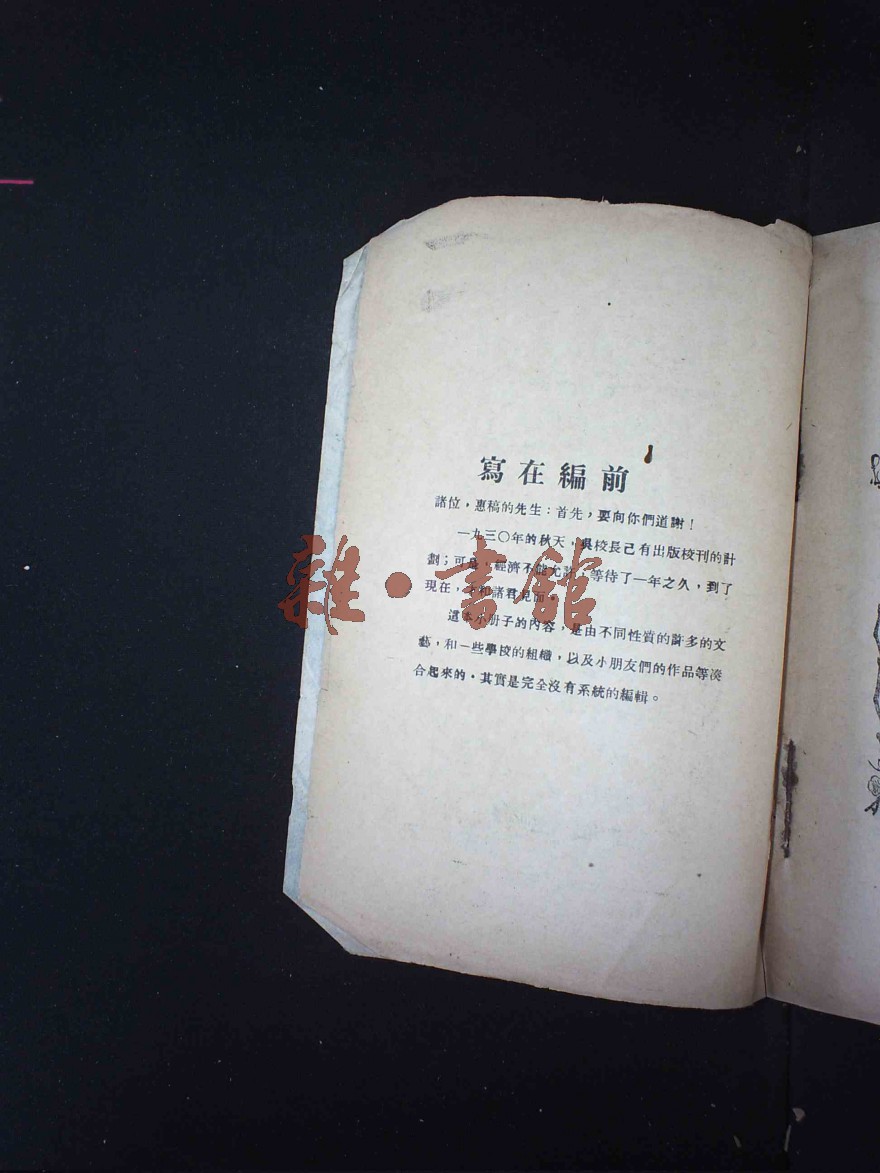 寫在編前
諸位，惠稿的先生：首先，要向你們道謝！
一九三〇年的秋天，吳校長已有出版校刊的計
劃；可是，經濟不能允許，等待了一年之久，到了
現在，才和諸君見面。
這本小册子的內容，是由不同性質的許多的文
藝，和一些學校的組織，以及小朋友們的作品等湊
合起來的．其實是完全沒有系統的編輯。
雜·書館